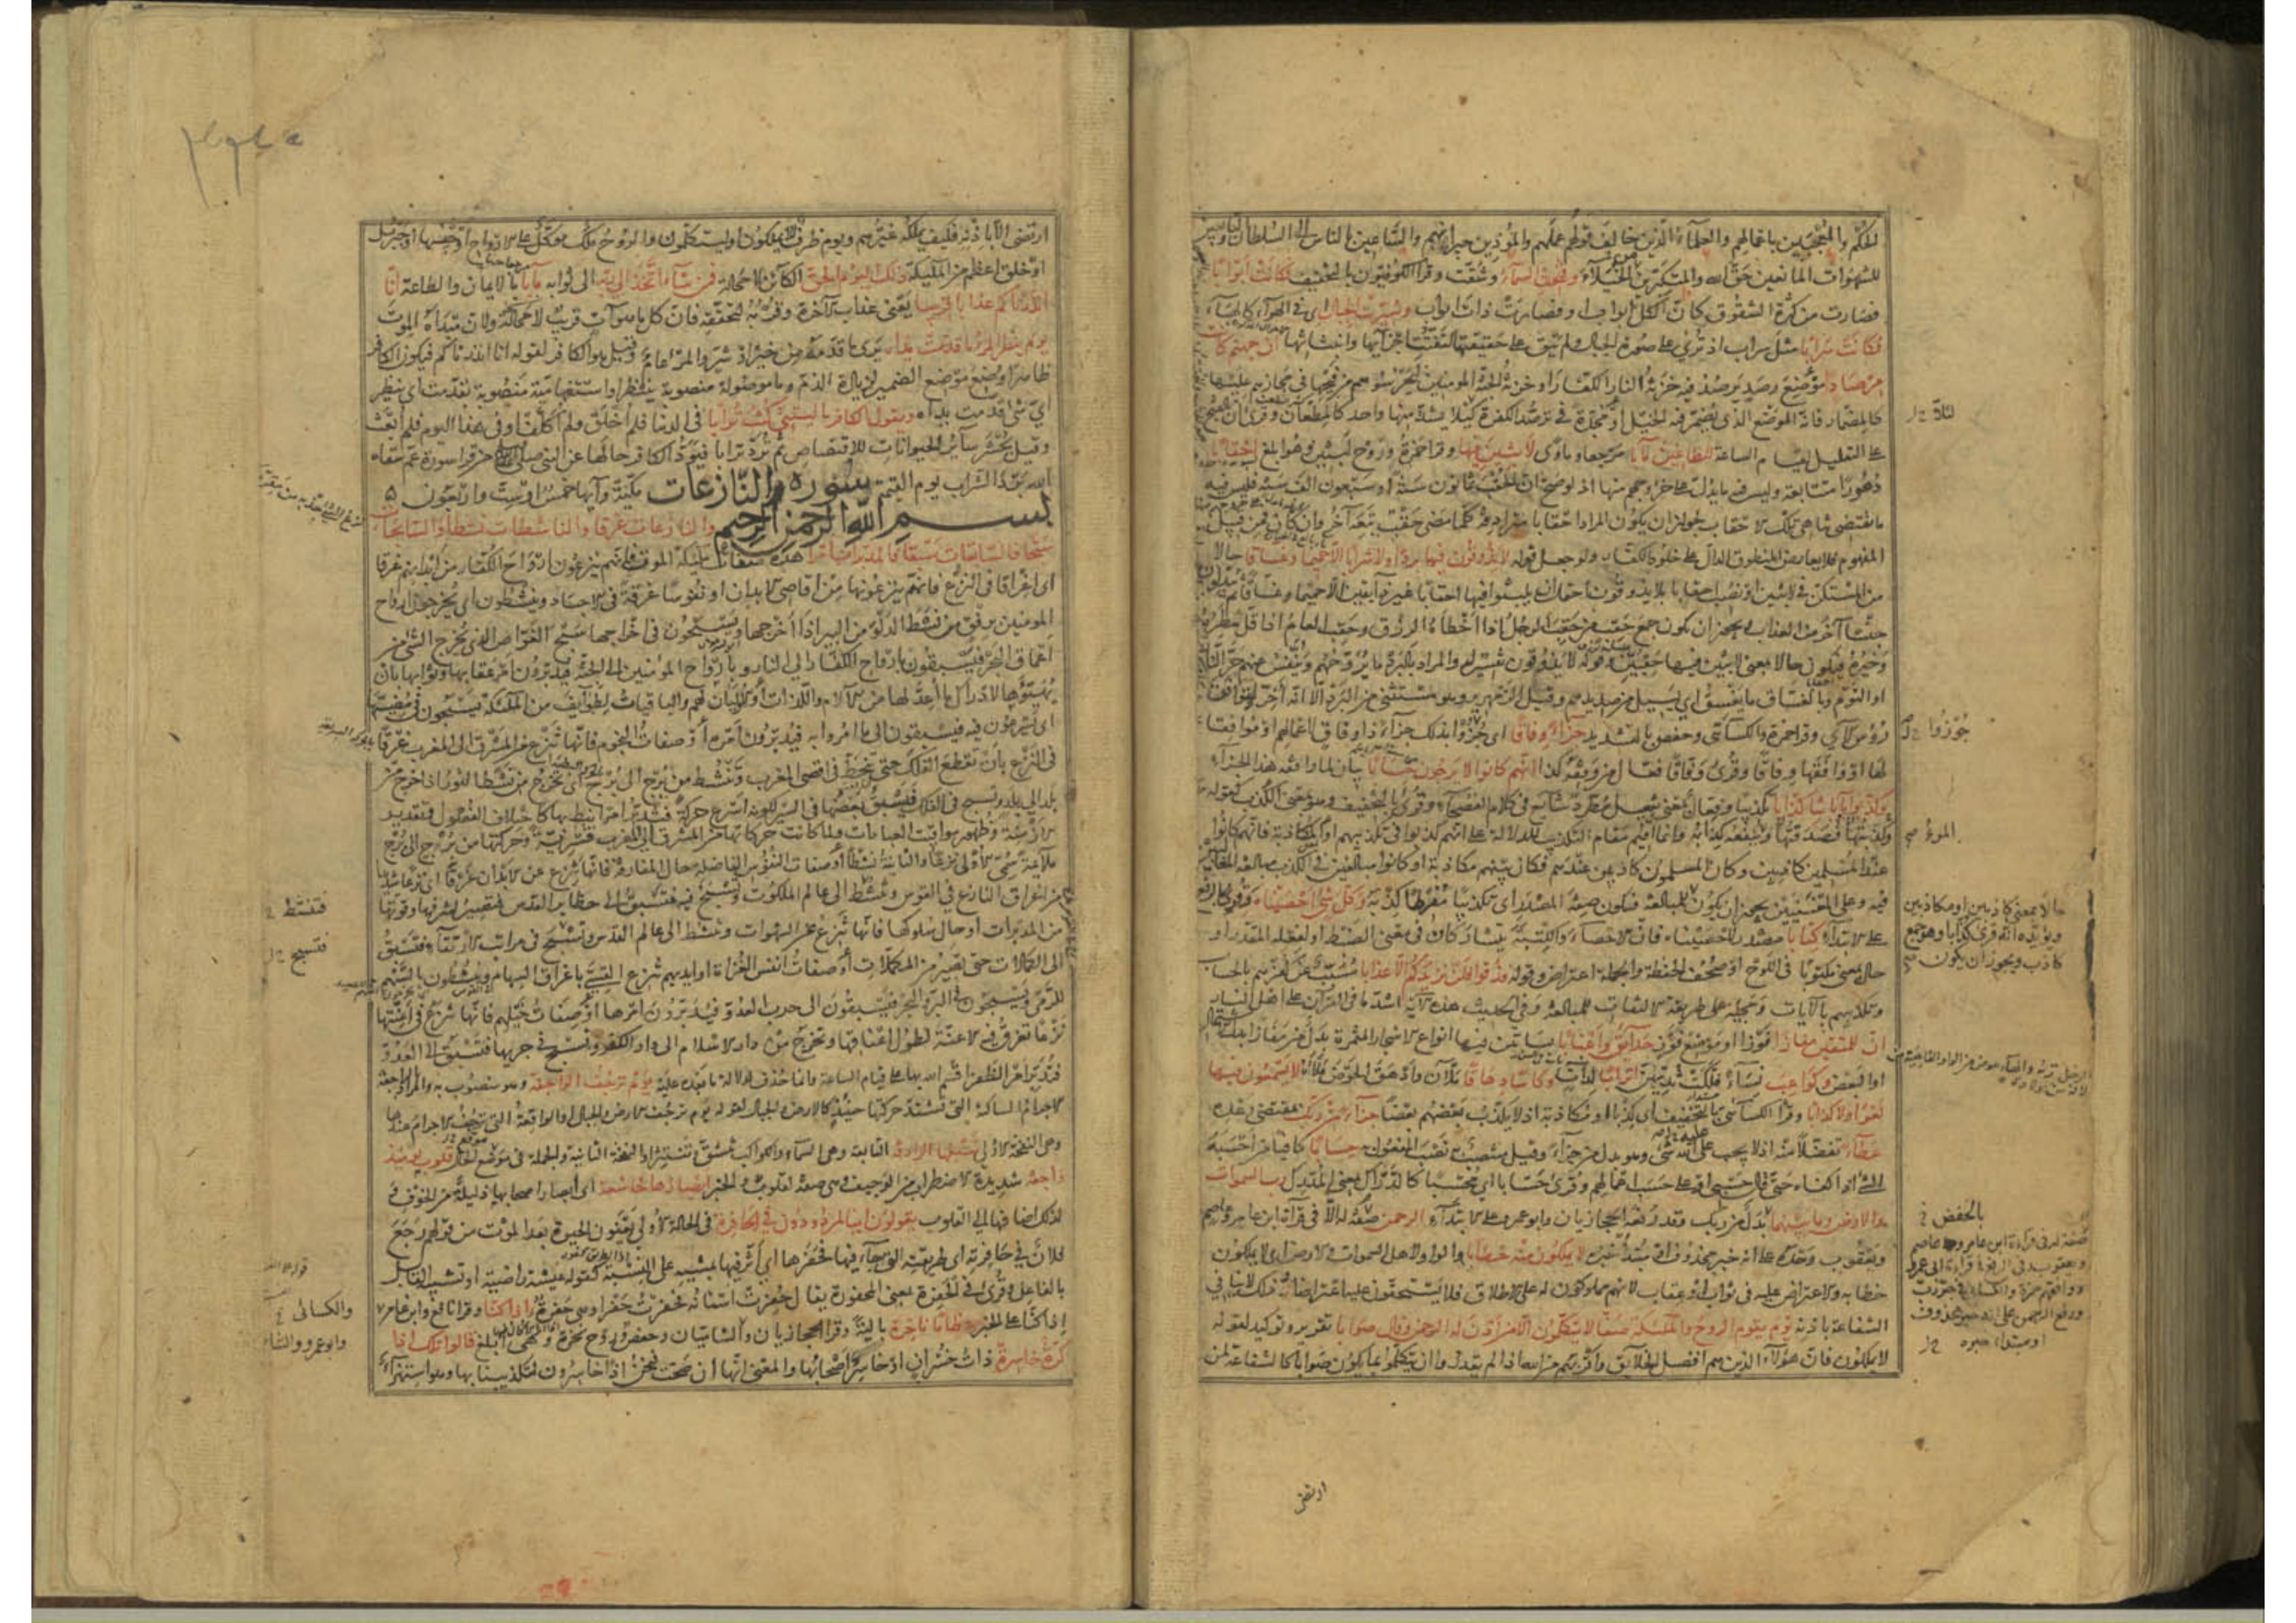 الحكم والمعجبين باعمالهم والعلماء الذين خالف قولهم عملهم والموذين جيرانهم والساعين بالناس الى السلطان والتابعين
للشهوات المانعين حق الله والمتكبرين الخيلاء وفتحت السماء وشقت وقرا الكوفيون بالتخفيف فكانت ابوابا
فصارت من كثرة الشقوق كان الكل ابواب او فصارت ذات ابواب وسيرت الجبال اى فى الهواء كالهباء
فكانت سرابا مثل سراب اذ ترى على صورة الجبال ولم تبق على حقيقتها لتفتت اجزائها وانبثاثها ان جهنم كانت
مرصادا موضع رصد يرصد فيه خزنة النار الكفار او خزنة الجنة المومنين ليحرسوهم من فيحها فى مجازهم عليها
كالمضمار فانه الموضع الذى يضمر فيه الخيل او مجدة فى ترصد الكفرة لئلا يشذ منها واحد كالمطعان وقرئ ان بالفتح
على التعليل لقيام الساعة للطاغين مآبا مرجعا وماوى لابثين فيها وقرا حمزة وروح لبثين وهو ابلغ احقابا
دهورا متتابعة وليس فيه ما يدل على خروجهم منها اذ لو صح ان الحقب ثمانون سنة او سبعون الف سنة فليس فيه
ما يقتضى تناهى تلك الاحقاب لجواز ان يكون المراد احقابا مترادفة كلما مضى حقب تبعه آخر وان كان فمن قبيل
المفهوم فلا يعارض المنطوق الدال على خلود الكفار ولو جعل قوله لا يذوقون فيها بردا ولا شرابا الا حميما وغساقا حالا
من المستكن فى لابثين او نصب احقابا بلا يذوقون احتمل ان يلبثوا فيها احقابا غير ذائقين الا حميما وغساقا ثم يبدلون
جنسا آخر من العذاب ويجوز ان يكون جمع حقب من حقب الرجل اذا اخطاه الرزق وحقب العام اذا قل مطره
وخيره فيكون حالا بمعنى لابثين فيها حقبين وقوله لا يذوقون تفسير له والمراد بالبرد ما يروحهم وينفس عنهم حر النار
او النوم وبالغساق ما يغسق اى يسيل من صديدهم وقيل الزمهرير وهو مستثنى من البرد الا انه اخر لتوافق
رؤس الآى وقرا حمزة والكسائى وحفص بالتشديد جزاء وفاقا اى جوزوا بذلك جزاء ذا وفاق لاعمالهم او موافقا
لها او وافقها وفاقا وقرئ وفاقا فعال من وفقه كذا انهم كانوا لا يرجون حسابا بيان لما وافقه هذا الجزاء
وكذبوا بآياتنا كذابا تكذيبا وفعال بمعنى تفعيل مطرد شائع فى كلام الفصحاء وقرئ بالتخفيف وهو بمعنى الكذب كقوله
فصدقتها وكذبتها والمرء ينفعه كذابه وانما اقيم مقام التكذيب للدلالة على انهم كذبوا فى تكذيبهم او المكاذبة فانهم كانوا
عند المسلمين كاذبين وكان المسلمون كاذبين عندهم فكان بينهم مكاذبة او كانوا مبالغين فى الكذب مبالغة المغالبين
فيه وعلى المعنيين يجوز ان يكون للمبالغة فيكون صفة المصدر اى تكذيبا مفرطا كذبه وكل شئ احصيناه وقرئ بالرفع
على الابتداء كتابا مصدر لاحصيناه فان الاحصاء والكتبة يتشاركان فى معنى الضبط او لفعله المقدر او
حال بمعنى مكتوبا فى اللوح او صحف الحفظة والجملة اعتراض وقوله فذوقوا فلن نزيدكم الا عذابا مسبب عن كفرهم بالحساب
وتكذيبهم بالآيات ومجيئه على طريقة الالتفات للمبالغة وفى الحديث هذه الآية اشد ما فى القرآن على اهل النار
ان للمتقين مفازا فوزا او موضع فوز حدائق واعنابا بساتين فيها انواع الاشجار المثمرة بدل من مفازا بدل الاشتمال
او البعض وكواعب نساء فلكت ثديهن اترابا لدات وكاسا دهاقا ملآن وادهق الحوض ملأه لا يسمعون فيها
لغوا ولا كذابا وقرا الكسائى بالتخفيف اى كذبا او مكاذبة اذ لا يكذب بعضهم بعضا جزاء من ربك بمقتضى وعده
عطاء تفضلا منه اذ لا يجب عليه شئ وهو بدل من جزاء وقيل منتصب به نصب المفعول به حسابا كافيا من احسبه
الشئ اذا كفاه حتى قال حسبى او على حسب اعمالهم وقرئ حسابا اى محسبا كالدراك بمعنى المدرك رب السموات
والارض وما بينهما بدل من ربك وقد رفعه الحجازيان وابو عمرو على الابتداء الرحمن صفة له الا فى قراءة ابن عامر وعاصم
ويعقوب وحده على انه خبر محذوف او مبتدأ خبره لا يملكون منه خطابا والواو لاهل السموات والارض اى لا يملكون
خطابه والاعتراض عليه فى ثواب او عقاب لانهم مملوكون له على الاطلاق فلا يستحقون عليه اعتراضا وذلك لا ينافى
الشفاعة باذنه يوم يقوم الروح والملئكة صفا لا يتكلمون الا من اذن له الرحمن وقال صوابا تقرير وتوكيد لقوله
لا يملكون فان هؤلاء الذين هم افضل الخلائق واقربهم من الله اذا لم يقدروا ان يتكلموا بما يكون صوابا كالشفاعة لمن
لئلا
جوزوا
المرء
حالا بمعنى كاذبين او مكاذبين
ويؤيده انه قرئ كذابا وهو جمع
كاذب ويجوز ان يكون
بالخفض
صفة له فى قراءة ابن عامر وعاصم
او مبتداء خبره
ارتضى
ارتضى الا باذنه فكيف يملكه غيرهم ويوم ظرف للا يملكون او ليتكلمون والروح ملك موكل على الارواح او جنسها او جبرئيل
او خلق اعظم من الملئكة ذلك اليوم الحق الكائن لا محالة فمن شاء اتخذ الى ربه الى ثوابه مآبا بالايمان والطاعة انا
انذرناكم عذابا قريبا يعنى عذاب الآخرة وقربه لتحققه فان كل ما هو آت قريب لا محالة ولان مبداه الموت
يوم ينظر المرء ما قدمت يداه يرى ما قدمه من خير او شر والمرء عام وقيل هو الكافر لقوله انا انذرناكم فيكون الكافر
ظاهرا وضع موضع الضمير لزيادة الذم وما موصولة منصوبة بينظر او استفهامية منصوبة بقدمت اى ينظر
اى شئ قدمت يداه ويقول الكافر يا ليتنى كنت ترابا فى الدنيا فلم اخلق ولم اكلف او فى هذا اليوم فلم ابعث
وقيل يحشر سائر الحيوانات للاقتصاص ثم ترد ترابا فيود الكافر حالها عن النبى صلى الله عليه من قرا سورة عم سقاه
الله برد الشراب يوم القيمة سورة والنازعات مكية وآيها خمس او ست واربعون
بسم الله الرحمن الرحيم والنازعات غرقا والناشطات نشطا والسابحات
سبحا فالسابقات سبقا فالمدبرات امرا هذه صفات ملئكة الموت فانهم ينزعون ارواح الكفار من ابدانهم غرقا
اى اغراقا فى النزع فانهم ينزعونها من اقاصى الابدان او نفوسا غرقة فى الاجساد وينشطون اى يخرجون ارواح
المومنين برفق من نشط الدلو من البير اذا اخرجها ويسبحون فى اخراجها سبح الغواص الذى يخرج الشئ من
اعماق البحر فيسبقون بارواح الكفار الى النار وبارواح المومنين الى الجنة فيدبرون امر عقابها وثوابها بان
يهيئوها لادراك ما اعد لها من الآلام واللذات او الاوليان لهم والباقيات لطوائف من الملئكة يسبحون فى مضيها
اى يسرعون فيه فيسبقون الى ما امروا به فيدبرون امره او صفات النجوم فانها تنزع من المشرق الى المغرب غرقا
فى النزع بان تقطع الفلك حتى تنحط فى اقصى المغرب وتنشط من برج الى برج اى تخرج من نشط الثور اذا خرج من
بلد الى بلد وتسبح فى الفلك فيسبق بعضها فى السير لكونه اسرع حركة فتدبر امرا نيط بها كاختلاف الفصول وتقدير
الازمنة وظهور مواقيت العبادات ولما كانت حركاتها من المشرق الى المغرب قسرية وحركتها من برج الى برج
ملائمة سمى الاولى نزعا والثانية نشطا او صفات النفوس الفاضلة حال المفارقة فانها تنزع عن الابدان غرقا اى نزعا شديدا
من اغراق النازع فى القوس وتنشط الى عالم الملكوت وتسبح فيه فتسبق الى حظاير القدس فتصير لشرفها وقوتها
من المدبرات او حال سلوكها فانها تنزع عن الشهوات وتنشط الى عالم القدس وتسبح فى مراتب الارتقاء فتسبق
الى الكمالات حتى تصير من المكملات او صفات انفس الغزاة او ايديهم تنزع القسى باغراق السهام وينشطون بالسهم
للرمى ويسبحون فى البر والبحر فيسبقون الى حرب العدو فيدبرون امرها او صفات خيلهم فانها تنزع فى اعنتها
نزعا تغرق فيه الاعنة لطول اعناقها وتخرج من دار الاسلام الى دار الكفر وتسبح فى جريها فتسبق الى العدو
فتدبر امر الظفر اقسم الله بها على قيام الساعة وانما حذف لدلالة ما بعده عليه يوم ترجف الراجفة وهو منصوب به والمراد بالراجفة
الاجرام الساكنة التى تشتد حركتها حينئذ كالارض والجبال لقوله يوم ترجف الارض والجبال او الواقعة التى ترجف الاجرام عندها
وهى النفخة الاولى تتبعها الرادفة التابعة وهى السماء والكواكب تنشق وتنتثر او النفخة الثانية والجملة فى موقع الحال قلوب يومئذ
واجفة شديدة الاضطراب من الوجيف وهى صفة لقلوب والخبر ابصارها خاشعة اى ابصار اصحابها ذليلة من الخوف و
لذلك اضافها الى القلوب يقولون ائنا لمردودون فى الحافرة فى الحالة الاولى يعنون الحيوة بعد الموت من قولهم رجع
فلان فى حافرته اى طريقته التى جاء فيها فحفرها اى اثر فيها بمشيه على النسبة كقوله عيشة راضية او تشبيه القابل
بالفاعل وقرئ فى الحفرة بمعنى المحفورة يقال حفرت اسنانه فحفرت حفرا وهى حفرة ائذا كنا وقرا نافع وابن عامر
اذا كنا على الخبر عظاما ناخرة بالية وقرا الحجازيان والشاميان وحفص وروح نخرة وهى ابلغ قالوا تلك اذا
كرة خاسرة ذات خسران او خاسر اصحابها والمعنى انها ان صحت فنحن اذا خاسرون لتكذيبنا بها وهو استهزاء
فتنشط
فتسبح
والكسائى
وابو عمرو والشا